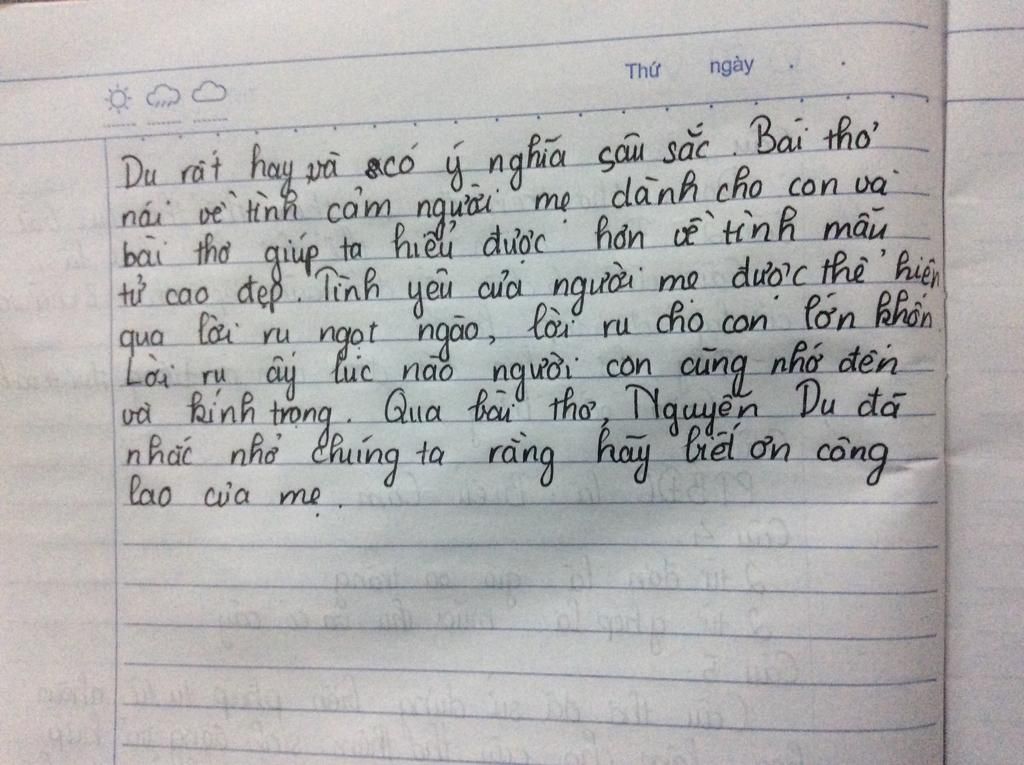 Thứ ngày
Du rất hay và có ý nghĩa sâu sắc. Bài thơ
nói về tình cảm người mẹ dành cho con và
bài thơ giúp ta hiểu được hơn về tình mẫu
tử cao đẹp. Tình yêu của người mẹ được thể hiện
qua lời ru ngọt ngào, lời ru cho con lớn khôn.
Lời ru ấy lúc nào người con cũng nhớ đến
và kính trọng. Qua bài thơ, Nguyễn Du đã
nhắc nhở chúng ta rằng hãy biết ơn công
lao của mẹ.